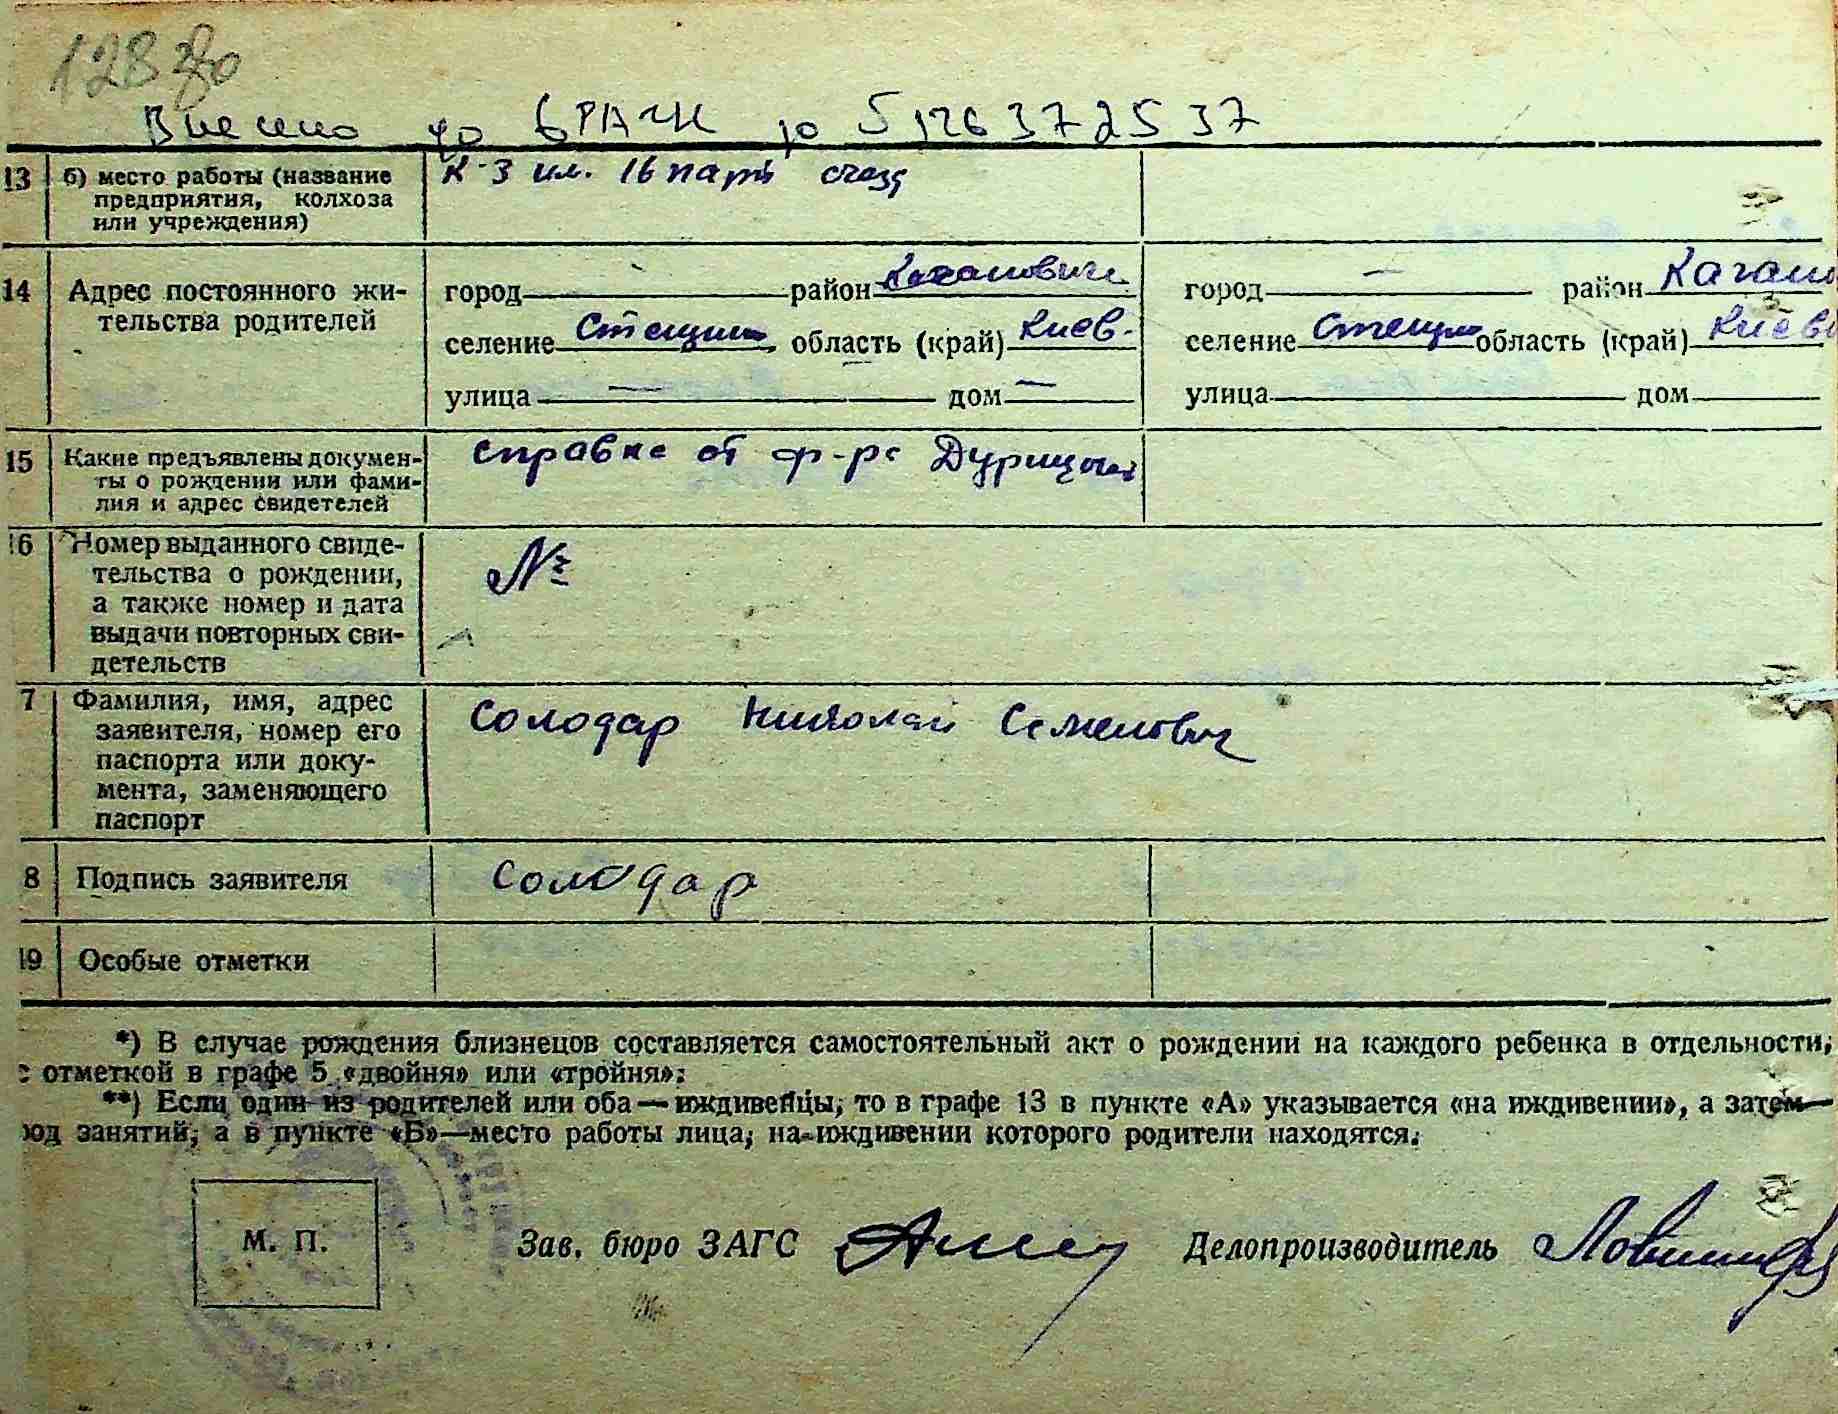 128
Внесено до ДРАЦС
13 б) место работы (название предприятия, колхоза или учреждения) К-з им. 16 парт съезд
14 Адрес постоянного жи-
тельства родителей
город район Каганович
селение область (край) Киев.
улица — дом —
город — район Кагано
селение область (край) Киев
улица дом
15 Какие предъявлены докумен-
ты о рождении или фами-
лия и адрес свидетелей
справка от ф-ра
16 Номер выданного свиде-
тельства о рождении,
а также номер и дата
выдачи повторных сви-
детельств
№
7 Фамилия, имя, адрес
заявителя, номер его
паспорта или доку-
мента, заменяющего
паспорт
Солодар Николай Семенович
8 Подпись заявителя Солодар
19 Особые отметки
*) В случае рождения близнецов составляется самостоятельный акт о рождении на каждого ребенка в отдельности,
с отметкой в графе 5 «двойня» или «тройня».
**) Если один из родителей или оба — иждивенцы, то в графе 13 в пункте «А» указывается «на иждивении», а затем—
род занятий, а в пункте «Б»—место работы лица, на иждивении которого родители находятся.
М. П.
Зав. бюро ЗАГС Делопроизводитель